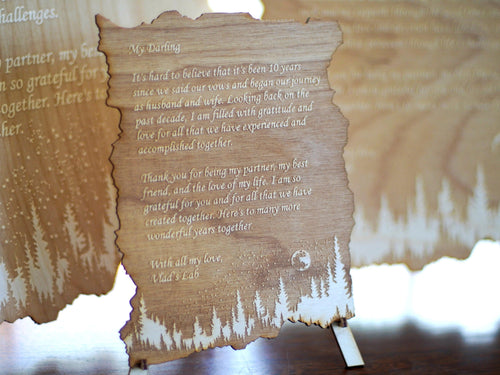 challenges.
my partner, my
so grateful for
together. Here's to
My Darling
It's hard to believe that it's been 10 years
since we said our vows and began our journey
as husband and wife. Looking back on the
past decade, I am filled with gratitude and
love for all that we have experienced and
accomplished together.
Thank you for being my partner, my best
friend, and the love of my life. I am so
grateful for you and for all that we have
created together. Here's to many more
wonderful years together.
With all my love,
Vlad's Lab